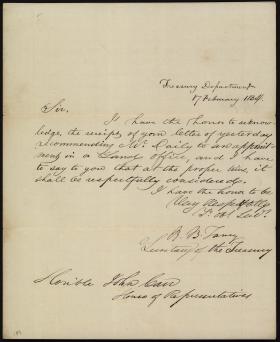 Treasury Department
17 February 1834.
Sir,
I have the honor to acknow-
ledge, the receipt of your letter of yesterday
recommending Mr. Daily to an appoint-
ment in a Land office, and I have
to say to you that at the proper time, it
shall be respectfully considered.
I have the honor to be
Very Respectfully
R. B. Taney
Secretary of the Treasury
Honble John Carr
House of Representatives